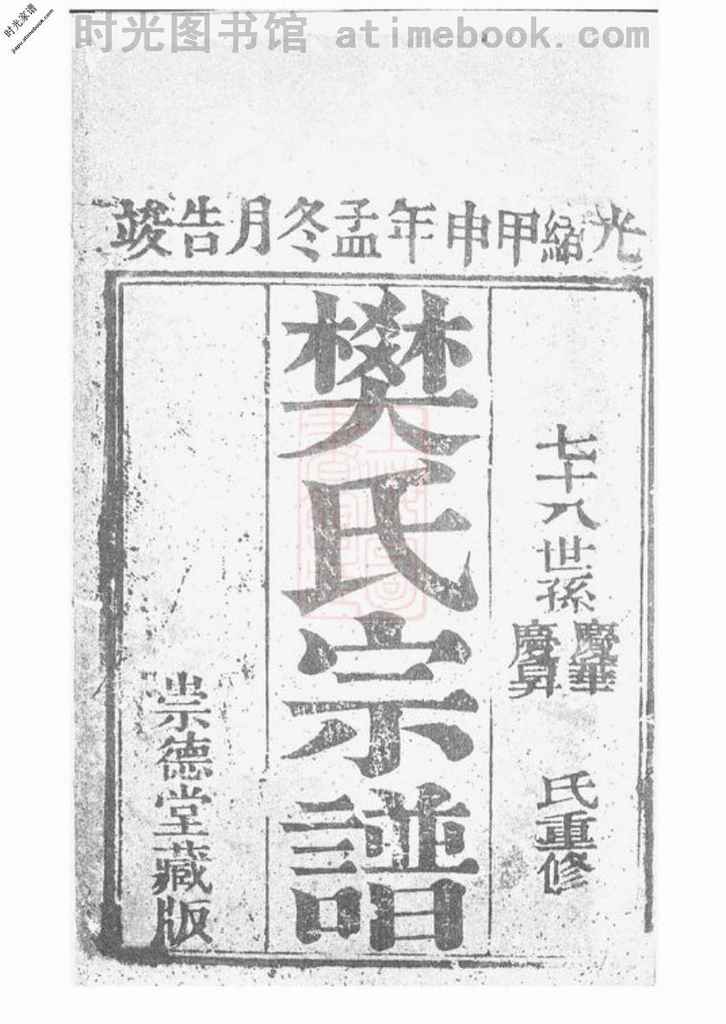 时光家谱
jiapu.atimebook.com
时光图书馆 atimebook.com
光緒甲申年孟冬月告竣
七十八世孫
慶華
慶昇
氏重修
樊氏宗譜
崇德堂藏版